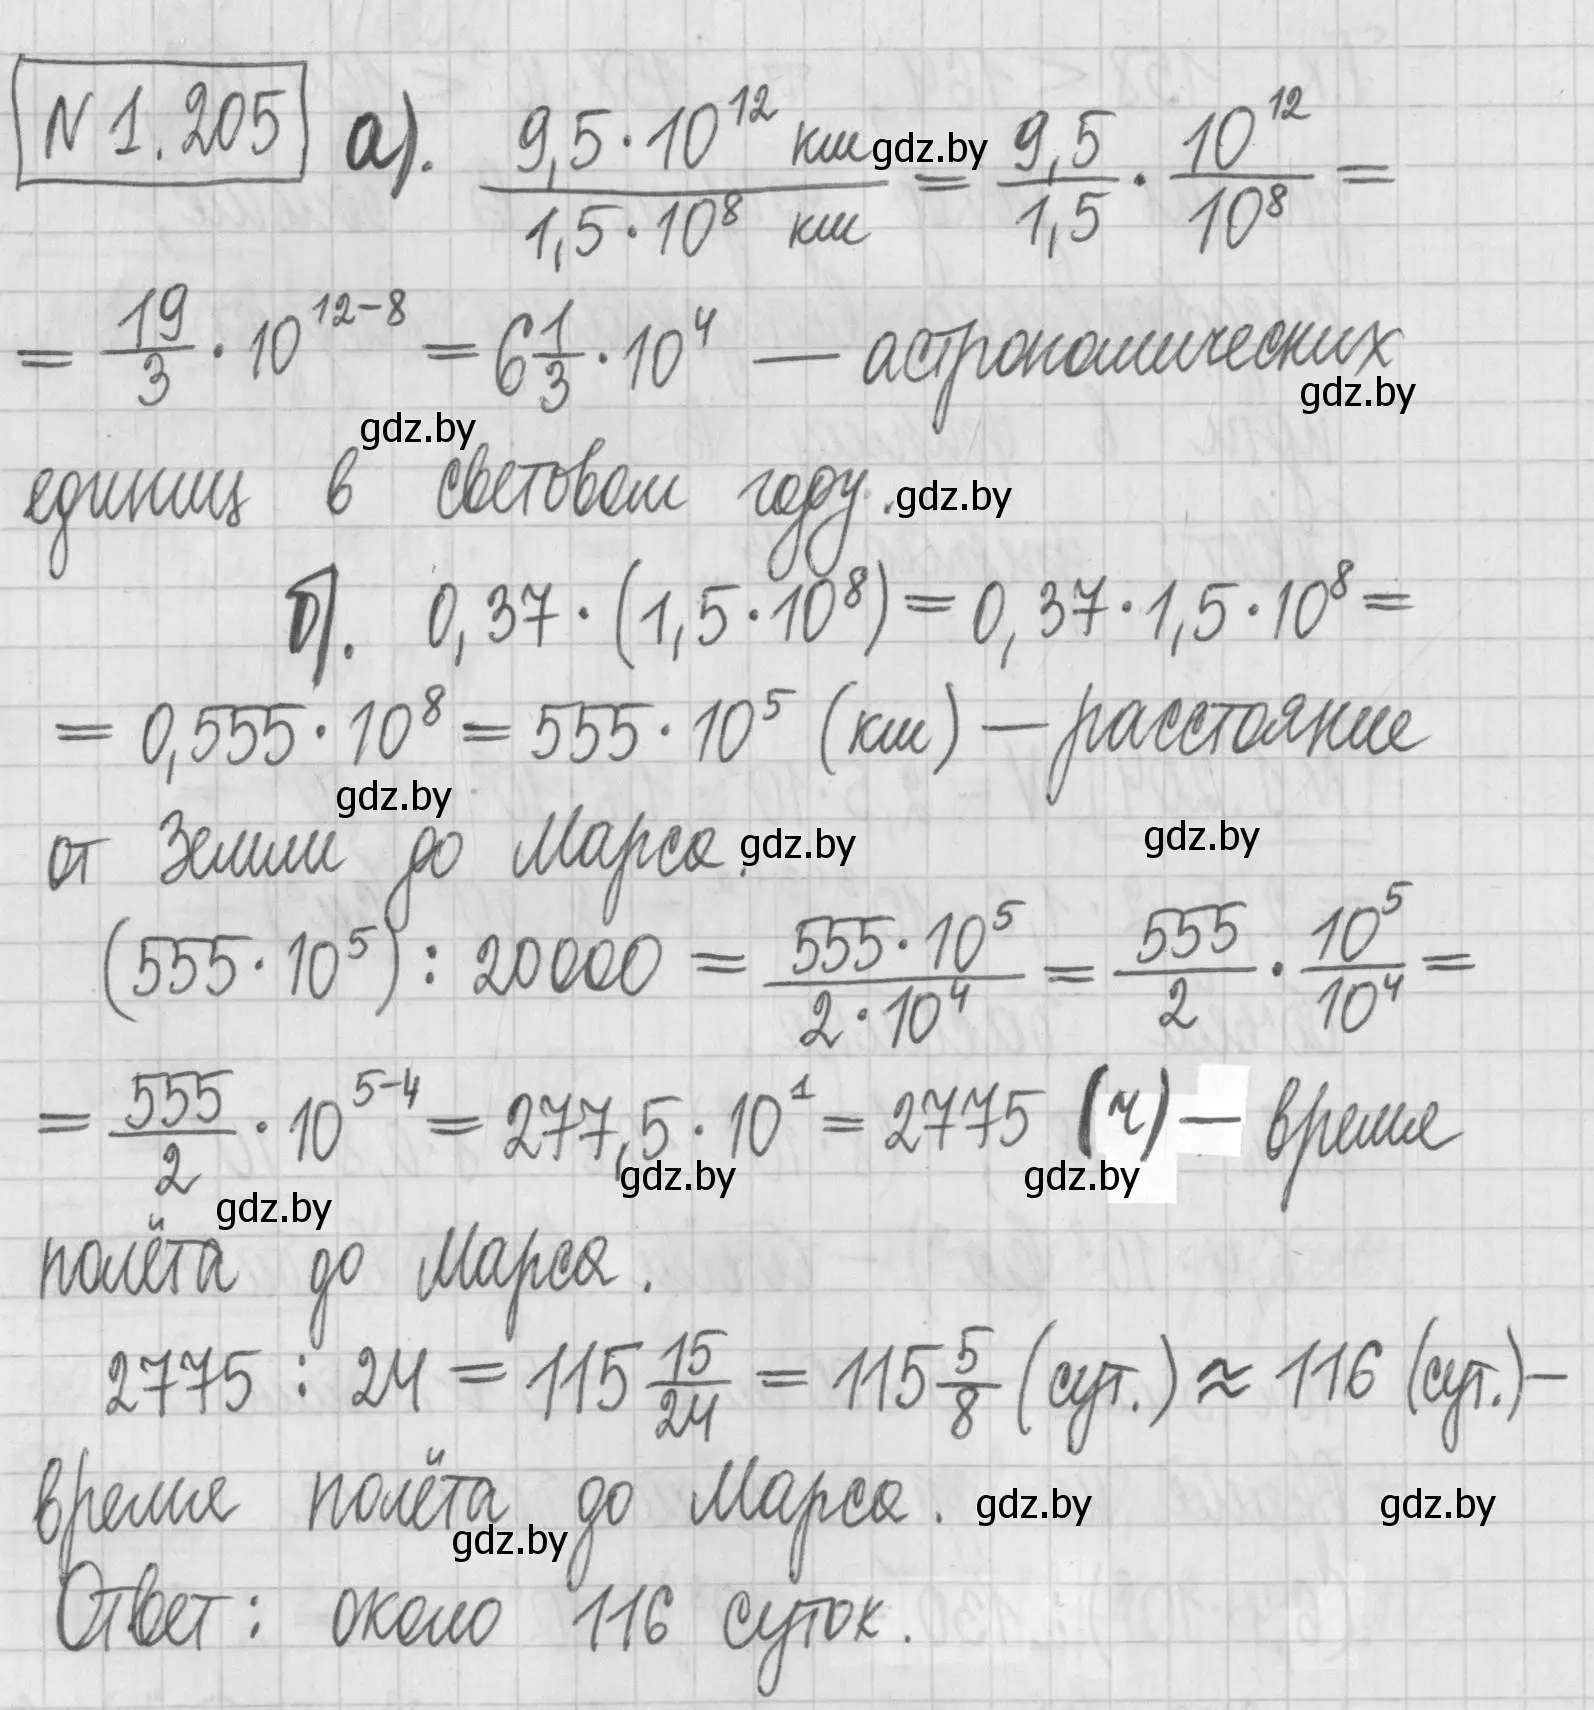 N 1.205 а). 9,5·10^12 км / 1,5·10^8 км = 9,5/1,5 · 10^12/10^8 = gdz.by
= 19/3 · 10^(12-8) = 6 1/3 · 10^4 — астрономических gdz.by
gdz.by
единиц в световом году. gdz.by
б). 0,37 · (1,5·10^8) = 0,37·1,5·10^8 =
= 0,555·10^8 = 555·10^5 (км) — расстояние
gdz.by
от Земли до Марса. gdz.by gdz.by
(555·10^5) : 20000 = 555·10^5 / 2·10^4 = 555/2 · 10^5/10^4 =
= 555/2 · 10^(5-4) = 277,5·10^1 = 2775 (ч) — время
gdz.by gdz.by gdz.by
полёта до Марса.
2775 : 24 = 115 15/24 = 115 5/8 (сут.) ≈ 116 (сут.) –
время полёта до Марса. gdz.by gdz.by
gdz.by
Ответ: около 116 суток.